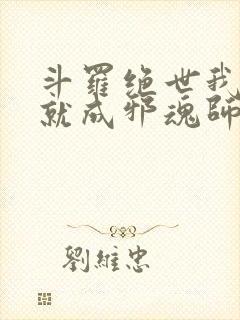 斗羅絶世我
就成邪魂師
劉維忠